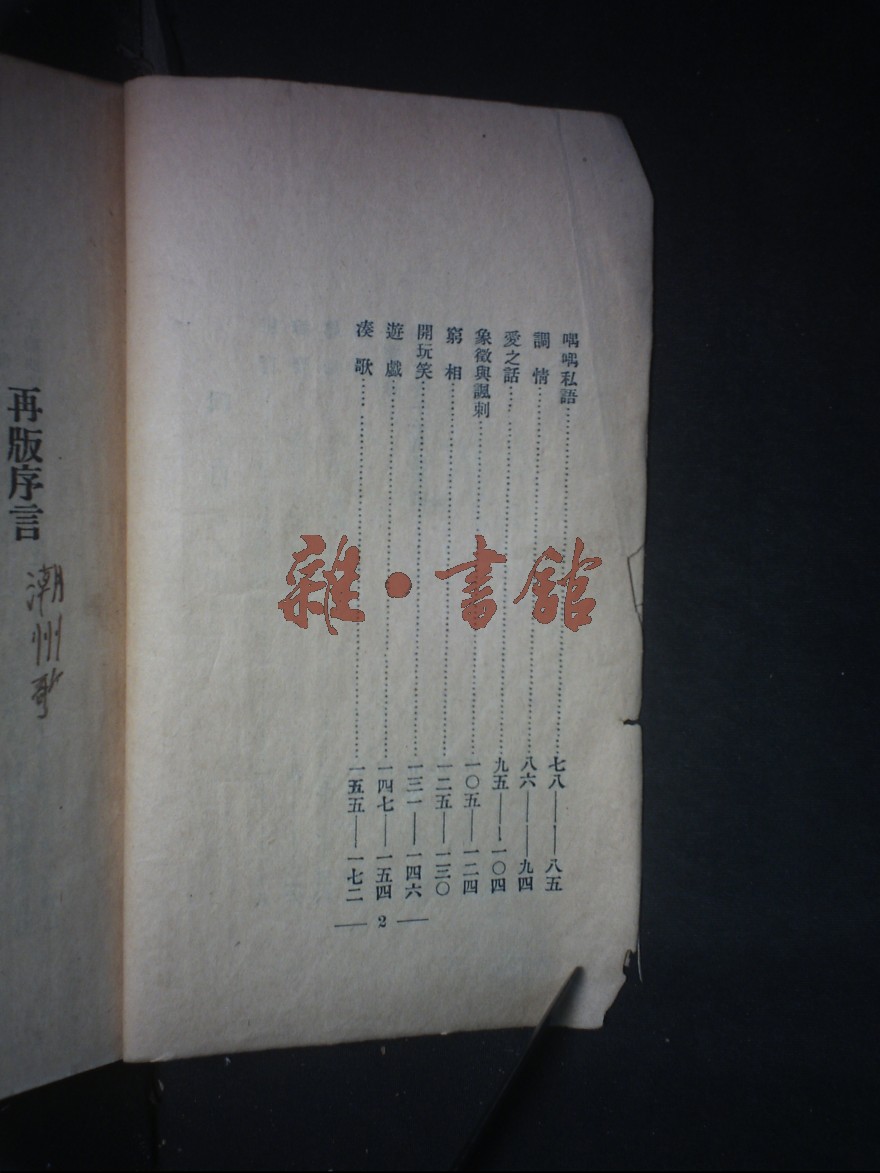 喁喁私語……七八——八五
調情……八六——九四
愛之話……九五——一〇四
象徵與諷刺……一〇五——一二四
窮相……一二五——一三〇
開玩笑……一三一——一四六
遊戲……一四七——一五四
湊歌……一五五——一七二
2
再版序言
潮州歌
雜·書館